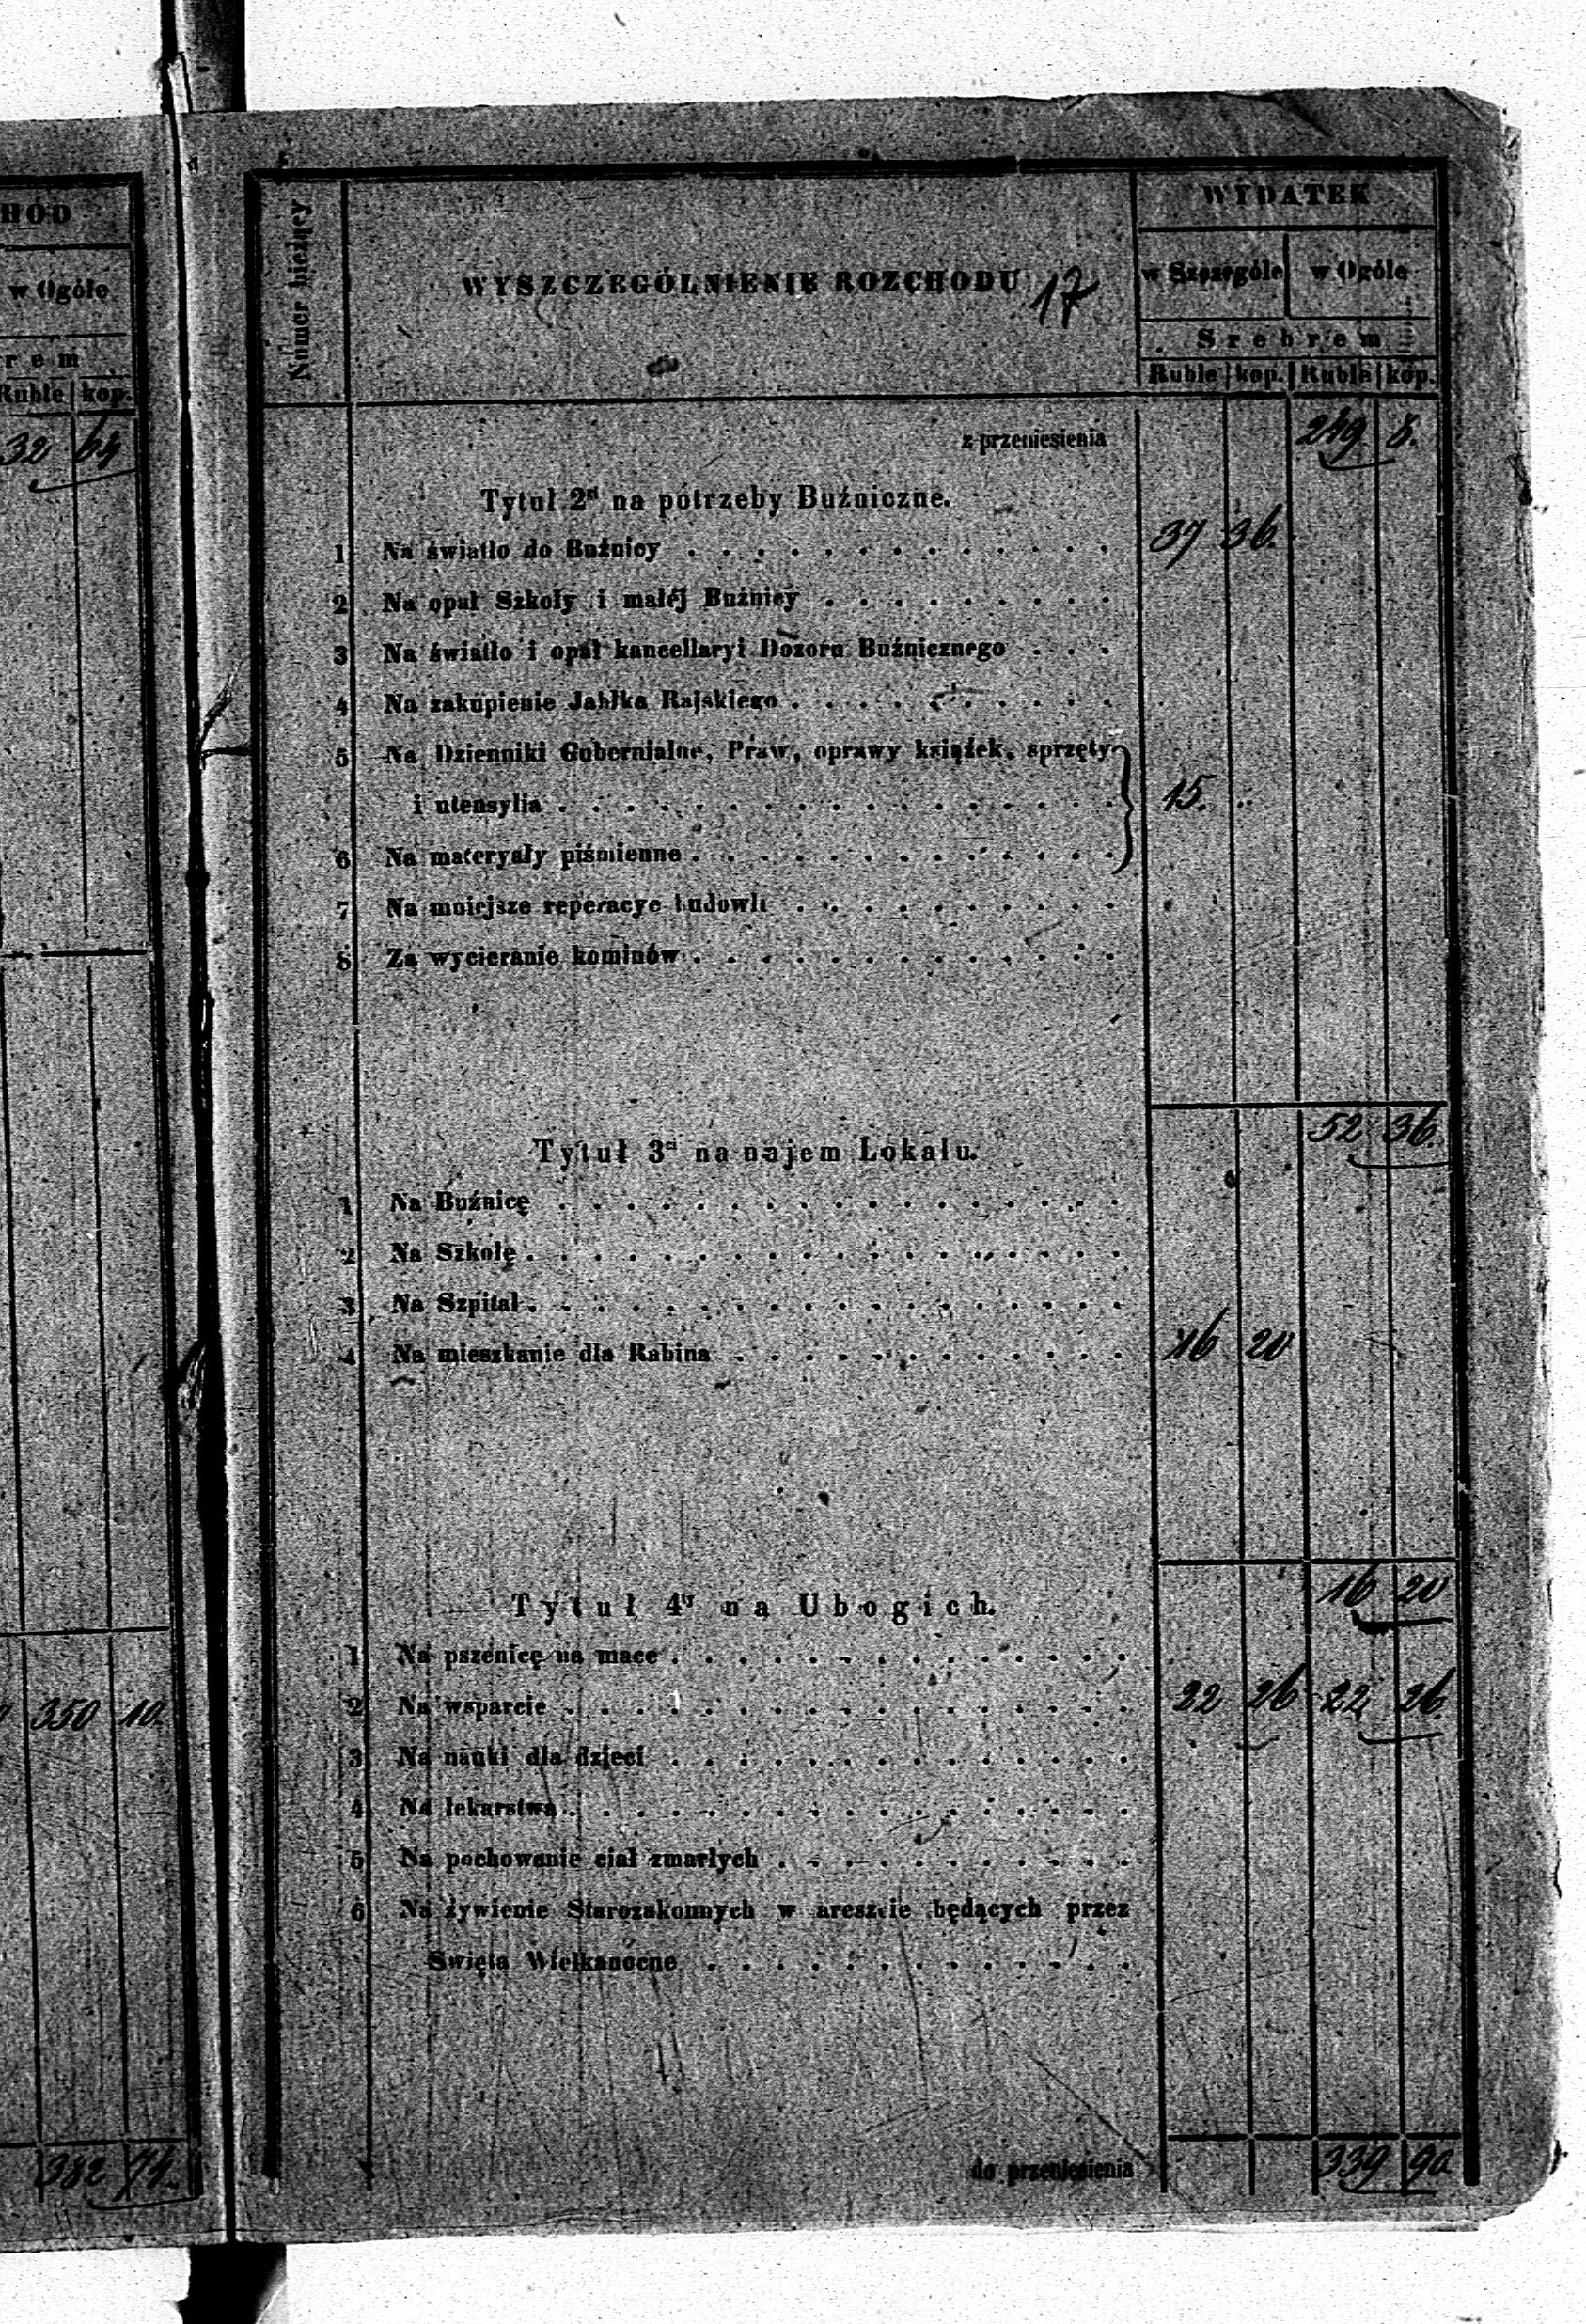 HOD
w Ogóle
rem
Ruble kop.
32 64
350 10.
382 74.
Numer bieżący
WYSZCZEGÓLNIENIE ROZCHODU 17
WYDATEK
w Szczególe w Ogóle
Srebrem
Ruble kop. Ruble kop.
z przeniesienia 249 8.
Tytuł 2gi na potrzeby Buźniczne.
1 Na światło do Buźnicy . . . . . . . . . . . . . 37 36.
2 Na opał Szkoły i małéj Buźnicy . . . . . . . . .
3 Na światło i opał kancellaryi Dozoru Buźnicznego . . .
4 Na zakupienie Jabłka Rajskiego . . . . . . . . . .
5 Na Dzienniki Gubernialne, Praw, oprawy książek, sprzęty
i utensylia . . . . . . . . . . . . . . . . . 15. ..
6 Na materyały piśmienne . . . . . . . . . . . . .
7 Na mniejsze reperacye budowli . . . . . . . . . .
8 Za wycieranie kominów . . . . . . . . . . . . .
52 36.
Tytuł 3ci na najem Lokalu.
1 Na Buźnicę . . . . . . . . . . . . . . . . .
2 Na Szkołę . . . . . . . . . . . . . . . . . .
3 Na Szpital . . . . . . . . . . . . . . . . . .
4 Na mieszkanie dla Rabina . . . . . . . . . . . . 16 20
16 20
Tytuł 4ty na Ubogich.
1 Na pszenicę na mace . . . . . . . . . . . . . .
2 Na wsparcie . . . . . . . . . . . . . . . . . 22 26 22 26.
3 Na nauki dla dzieci . . . . . . . . . . . . . .
4 Na lekarstwa . . . . . . . . . . . . . . . . .
5 Na pochowanie ciał zmarłych . . . . . . . . . . .
6 Na żywienie Starozakonnych w areszcie będących przez
Święta Wielkanocne . . . . . . . . . . . . .
do przeniesienia 339 90